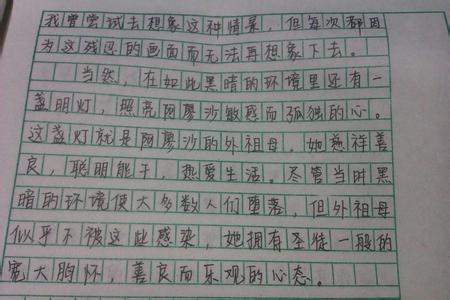 我曾尝试去想象这种情景，但每次都因
为这残忍的画面而无法再想象下去。
当然，在如此黑暗的环境里还有一
盏明灯，照亮阿廖沙敏感而孤独的心。
这盏灯就是阿廖沙的外祖母。她慈祥善
良，聪明能干，热爱生活。尽管当时黑
暗的环境使大多数人们堕落，但外祖母
似乎不被这些感染，她拥有圣徒一般的
宽大胸怀，善良而乐观的心态。